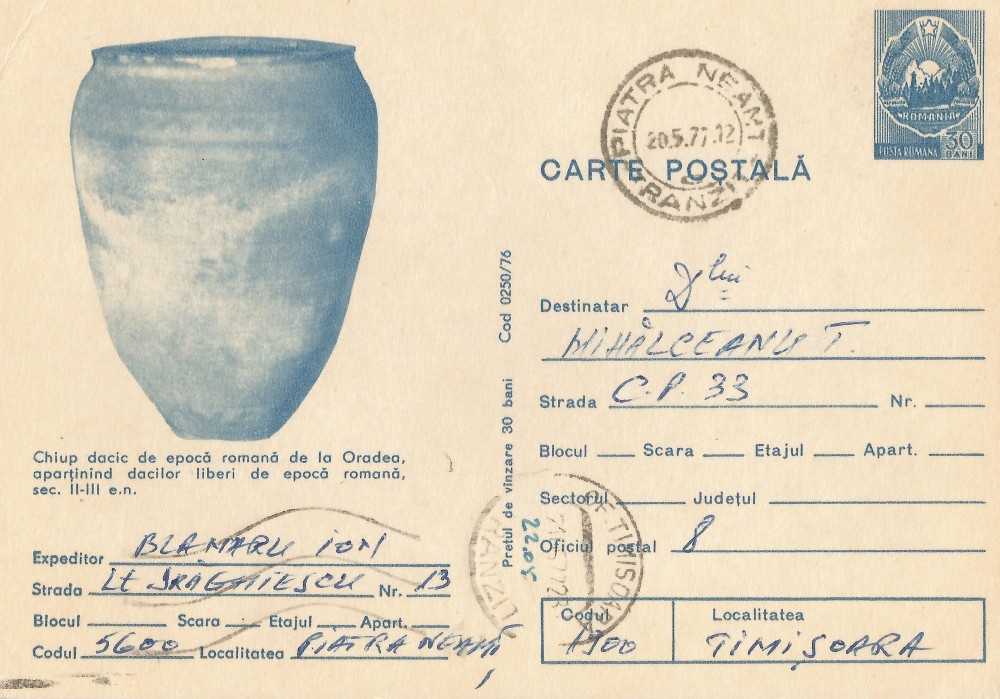 PIATRA NEAMȚ
20.5.77.12
TRANZIT
ROMANIA
POSTA ROMANA 30 BANI
CARTE POȘTALĂ
Destinatar Dlui
MIHĂLCEANU T.
Strada C.P. 33 Nr.
Blocul Scara Etajul Apart.
Sectorul Județul
Oficiul poștal 8
Codul Localitatea
1900 TIMIȘOARA
Cod 0250/76
Prețul de vînzare 30 bani
22.05
OF. TIMISOARA
TRANZIT
Chiup dacic de epocă romană de la Oradea,
aparținînd dacilor liberi de epocă romană,
sec. II-III e.n.
Expeditor BLAMARU ION
Strada LT DRĂGHIESCU Nr. 13
Blocul Scara Etajul Apart.
Codul 5600 Localitatea PIATRA NEAMȚ